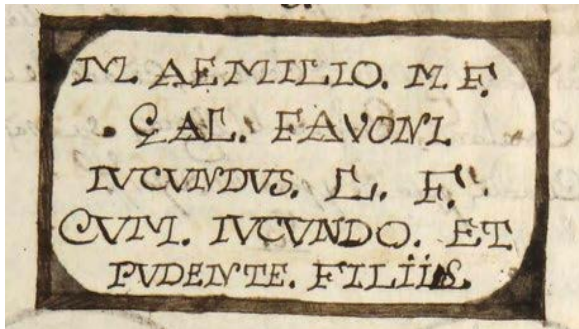 M. AEMILIO. M. F.
. GAL. FAVONI
IVCVNDVS. L. F.
CVM. IVCVNDO. ET
PVDENTE. FILIIS.